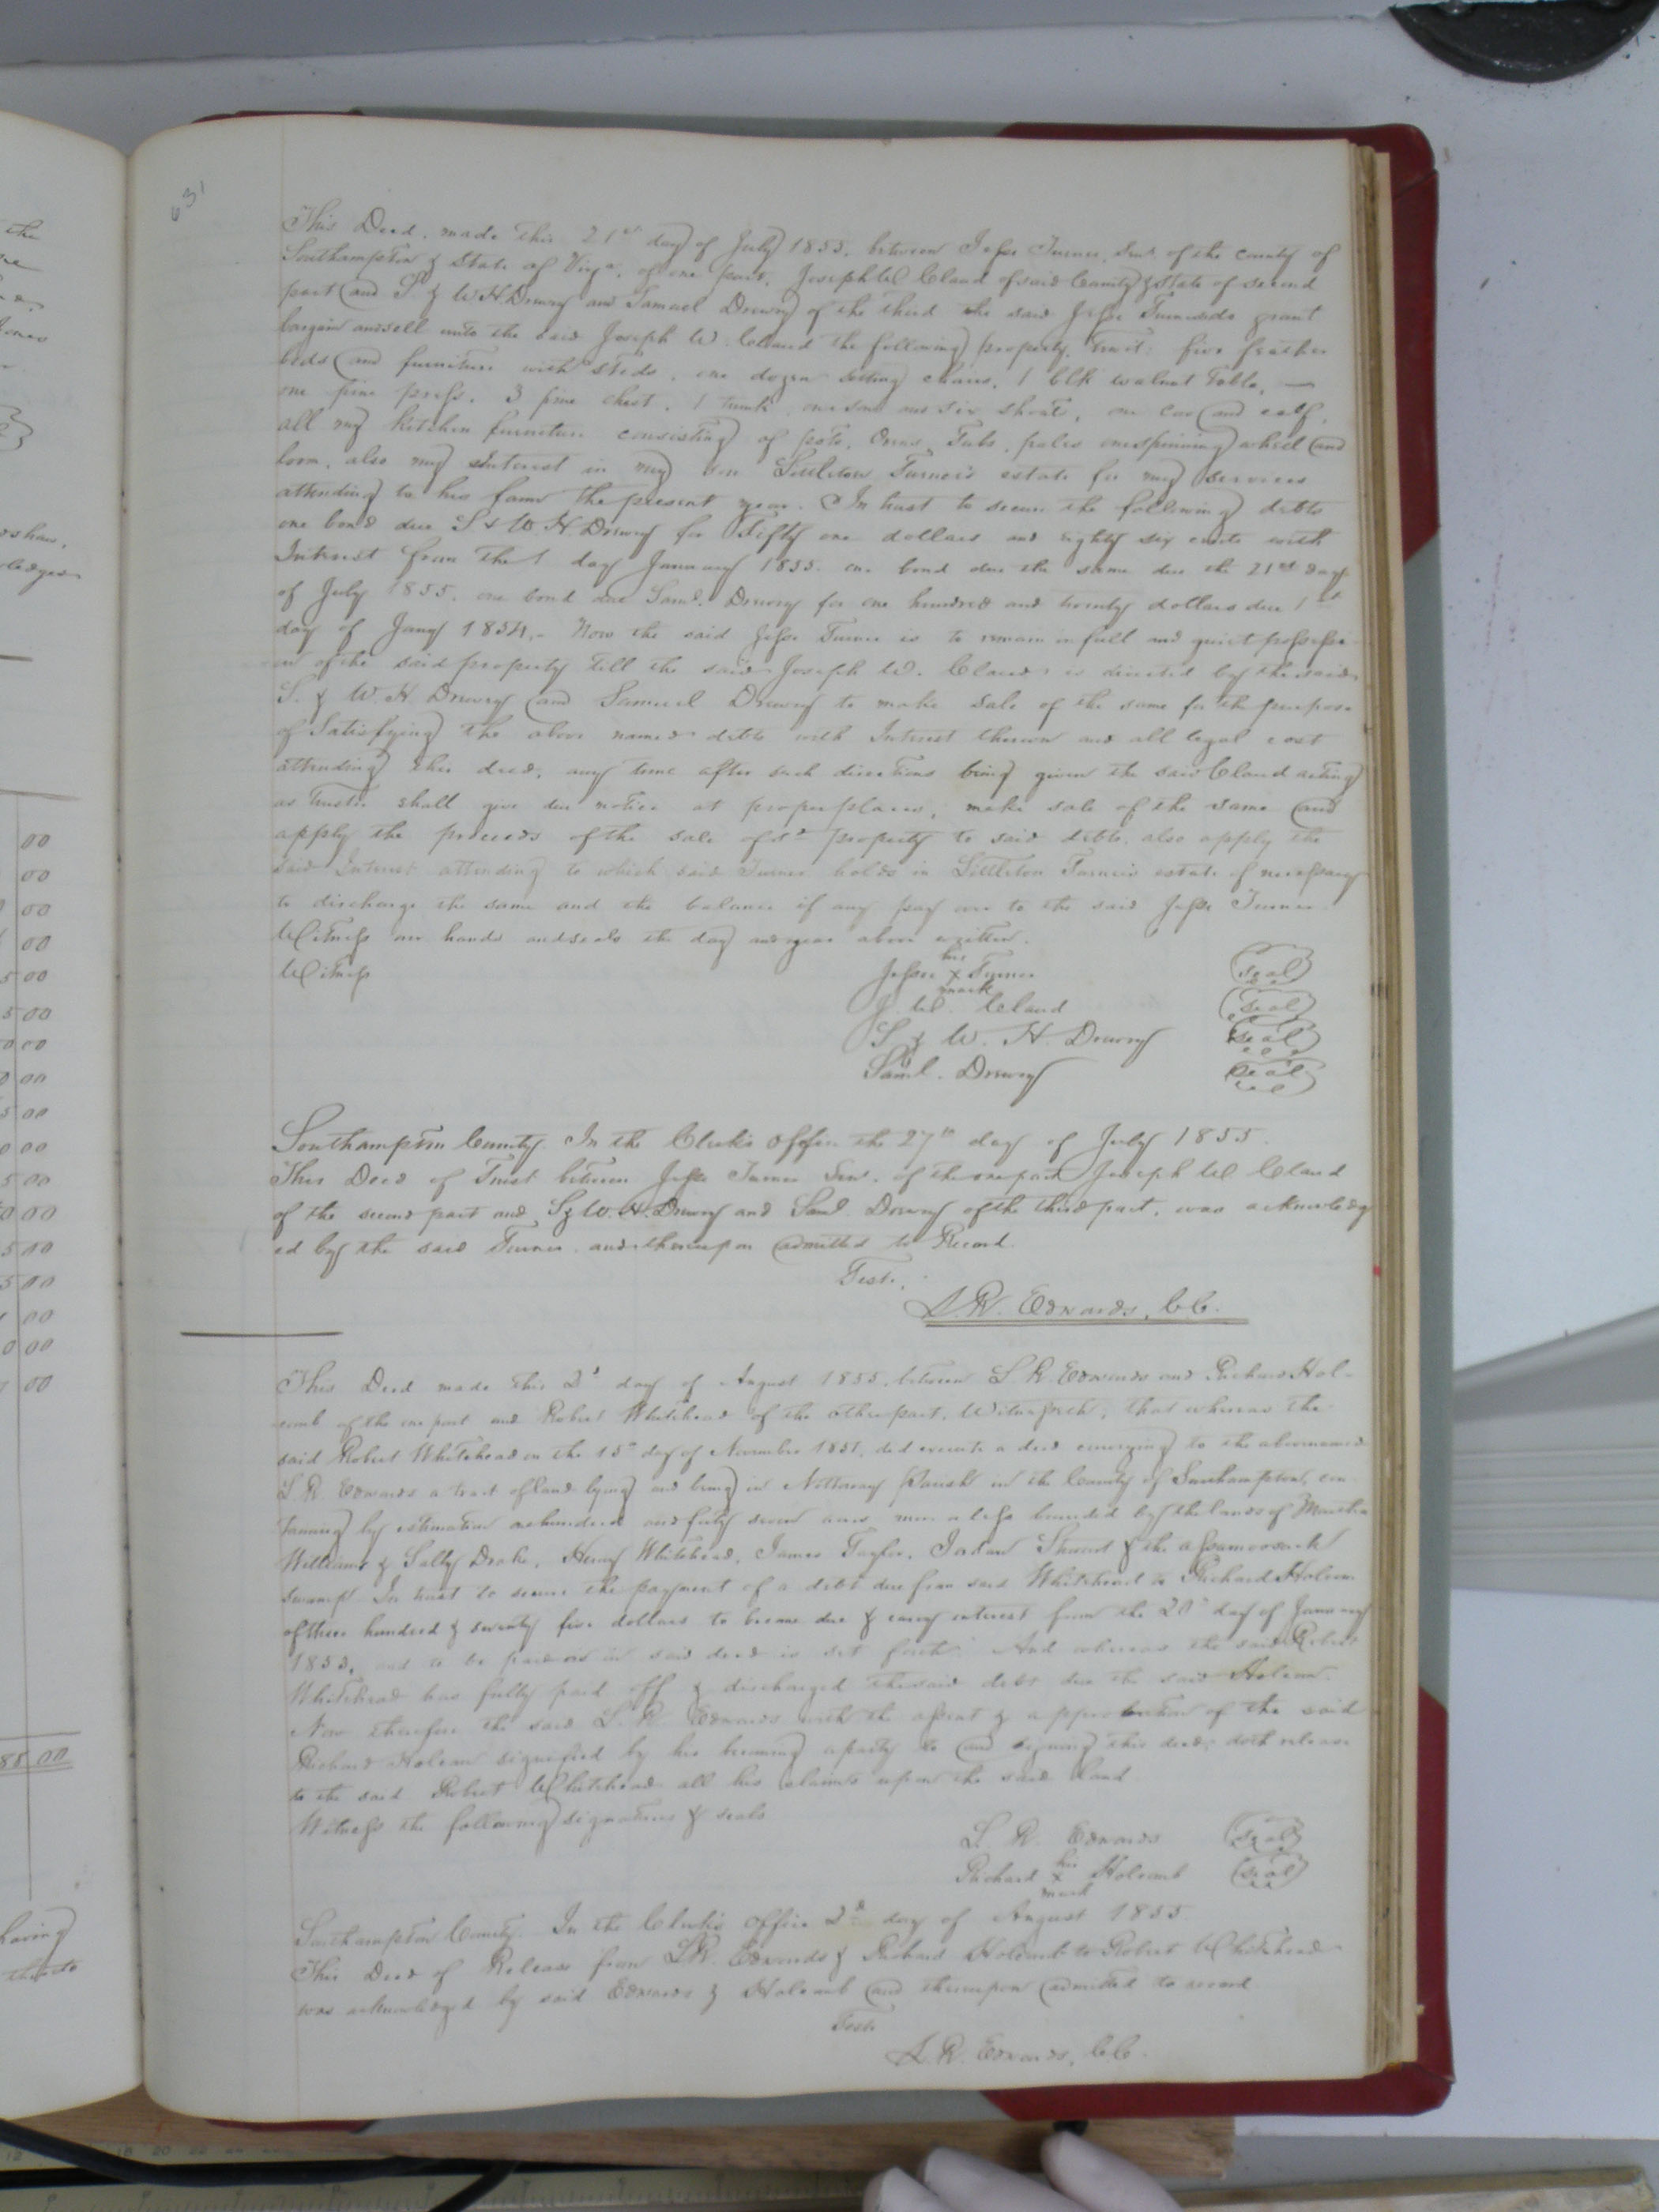 631
This Deed, made this 21st day of July 1855, between Jesse Turner Senr. of the county of
Southampton & State of Virga. of one part, Joseph W Claud of said County & State of second
part and S & W. H. Drewry and Samuel Drewry of the third the said Jesse Turner do grant
bargain and sell unto the said Joseph W. Claud the following property, to wit: five feather
beds and furniture with steds, one dozen setting chairs, 1 blk walnut Table, —
one pine press, 3 pine chest, 1 trunk, one sow and six shoats, one cow and calf,
all my kitchen furniture consisting of pots, Ovens, Tubs, pales one spinning wheel and
loom, also my Interest in my son Littleton Turner's estate for my services
attending to his farm the present year. In trust to secure the following debts
one bond due S & W. H. Drewry for Fifty one dollars and eighty six cents with
Interest from the 1 day January 1855. one bond due the same due the 21st day
of July 1855. one bond due Saml. Drewry for one hundred and twenty dollars due 1st
day of Jany 1854,- Now the said Jesse Turner is to remain in full and quiet possessi-
on of the said property till the said Joseph W. Claud is directed by the said
S. & W. H Drewry and Samuel Drewry to make Sale of the same for the purpose
of Satisfying the above named debts with Interest thereon and all legal cost
attending this deed, any time after such directions being given the said Claud acting
as Trustee shall give due notice at proper places, make sale of the same and
apply the proceeds of the sale of sd property to said debts, also apply the
said Interest attending to which said Turner holds in Littleton Turner's estate if necessary
to discharge the same and the balance if any pay over to the said Jesse Turner
Witness our hands and seals the day and year above written.
Witness
his
Jesse x Turner (seal)
mark
J. W. Claud (seal)
S & W. H. Drewry (seal)
Saml. Drewry (seal)
Southampton County. In the Clerk's Office the 27th day of July 1855.
This Deed of Trust between Jesse Turner Senr. of the one part Joseph W Claud
of the second part and S & W. H. Drewry and Saml. Drewry of the third part, was acknowledg
ed by the said Turner and thereupon admitted to Record.
Test.
L. R. Edwards, C.C.
This Deed made this 2d day of August 1855, between L. R. Edwards and Richard Hol-
comb of the one part and Robert Whitehead of the other part, Witnesseth, that whereas the
said Robert Whitehead on the 15th day of November 1851, did execute a deed conveying to the abovenamed
L. R. Edwards a tract of land lying and being in Nottoway Parish in the County of Southampton, con
taining by estimation one hundred and forty seven acres more or less bounded by the lands of Martha
Williams & Sally Drake, Henry Whitehead, James Taylor, Jordan Stewart & the Assamoosack
swamp In trust to secure the payment of a debt due from said Whitehead to Richard Holcom
of three hundred & seventy five dollars to become due & carry interest from the 20th day of January
1853, and to be paid as in said deed is set forth. And whereas the said Robert
Whitehead has fully paid off & discharged the said debt due the said Holcom.
Now therefore the said L. R. Edwards with the assent & approbation of the said
Richard Holcom signified by his becoming a party to and signing this deed, doth release
to the said Robert Whitehead all his claims upon the said land
Witness the following signatures & seals
L. R. Edwards (seal)
his
Richard x Holcomb (seal)
mark
Southampton County. In the Clerk's Office 2d day of August 1855
This Deed of Release from L. R. Edwards & Richard Holcomb to Robert Whitehead
was acknowledged by said Edwards & Holcomb and thereupon admitted to record
Test.
L. R. Edwards, C.C.